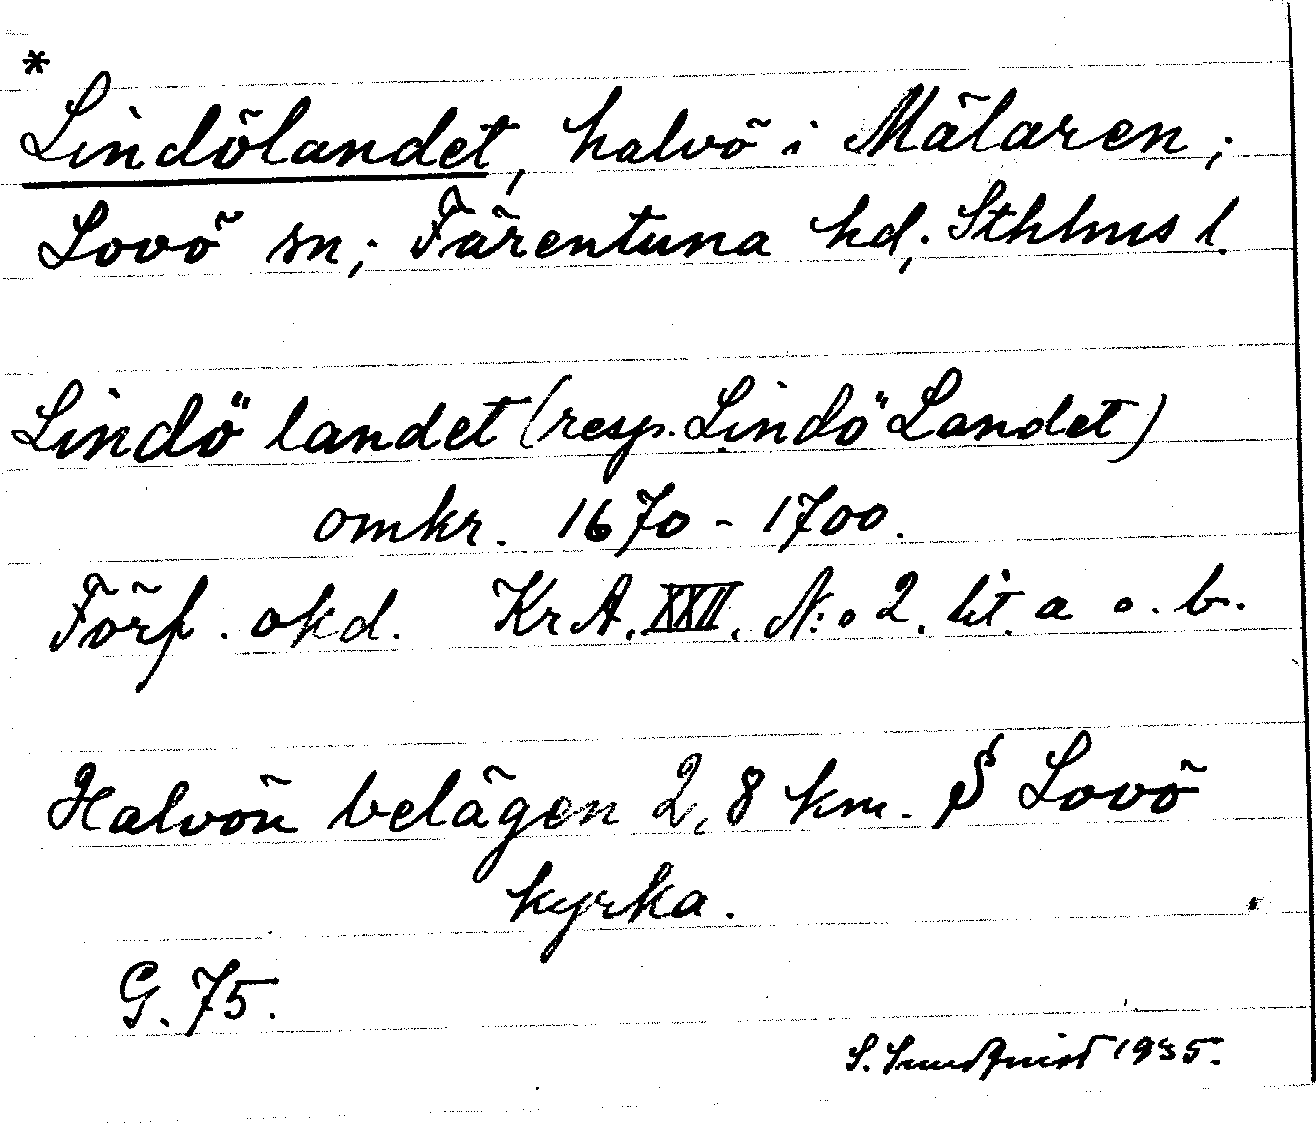 * Lindölandet, halvö i Mälaren;
Lovö sn; Färentuna hd; Sthlms l.
Lindö landet (resp. Lindö Landet)
omkr. 1670 - 1700.
Förf. okd. Kr A. XXII. N:o 2. lit. a o. b.
Halvön belägen 2,8 km. S Lovö
kyrka.
G. 75.
S. Sundquist 1935.